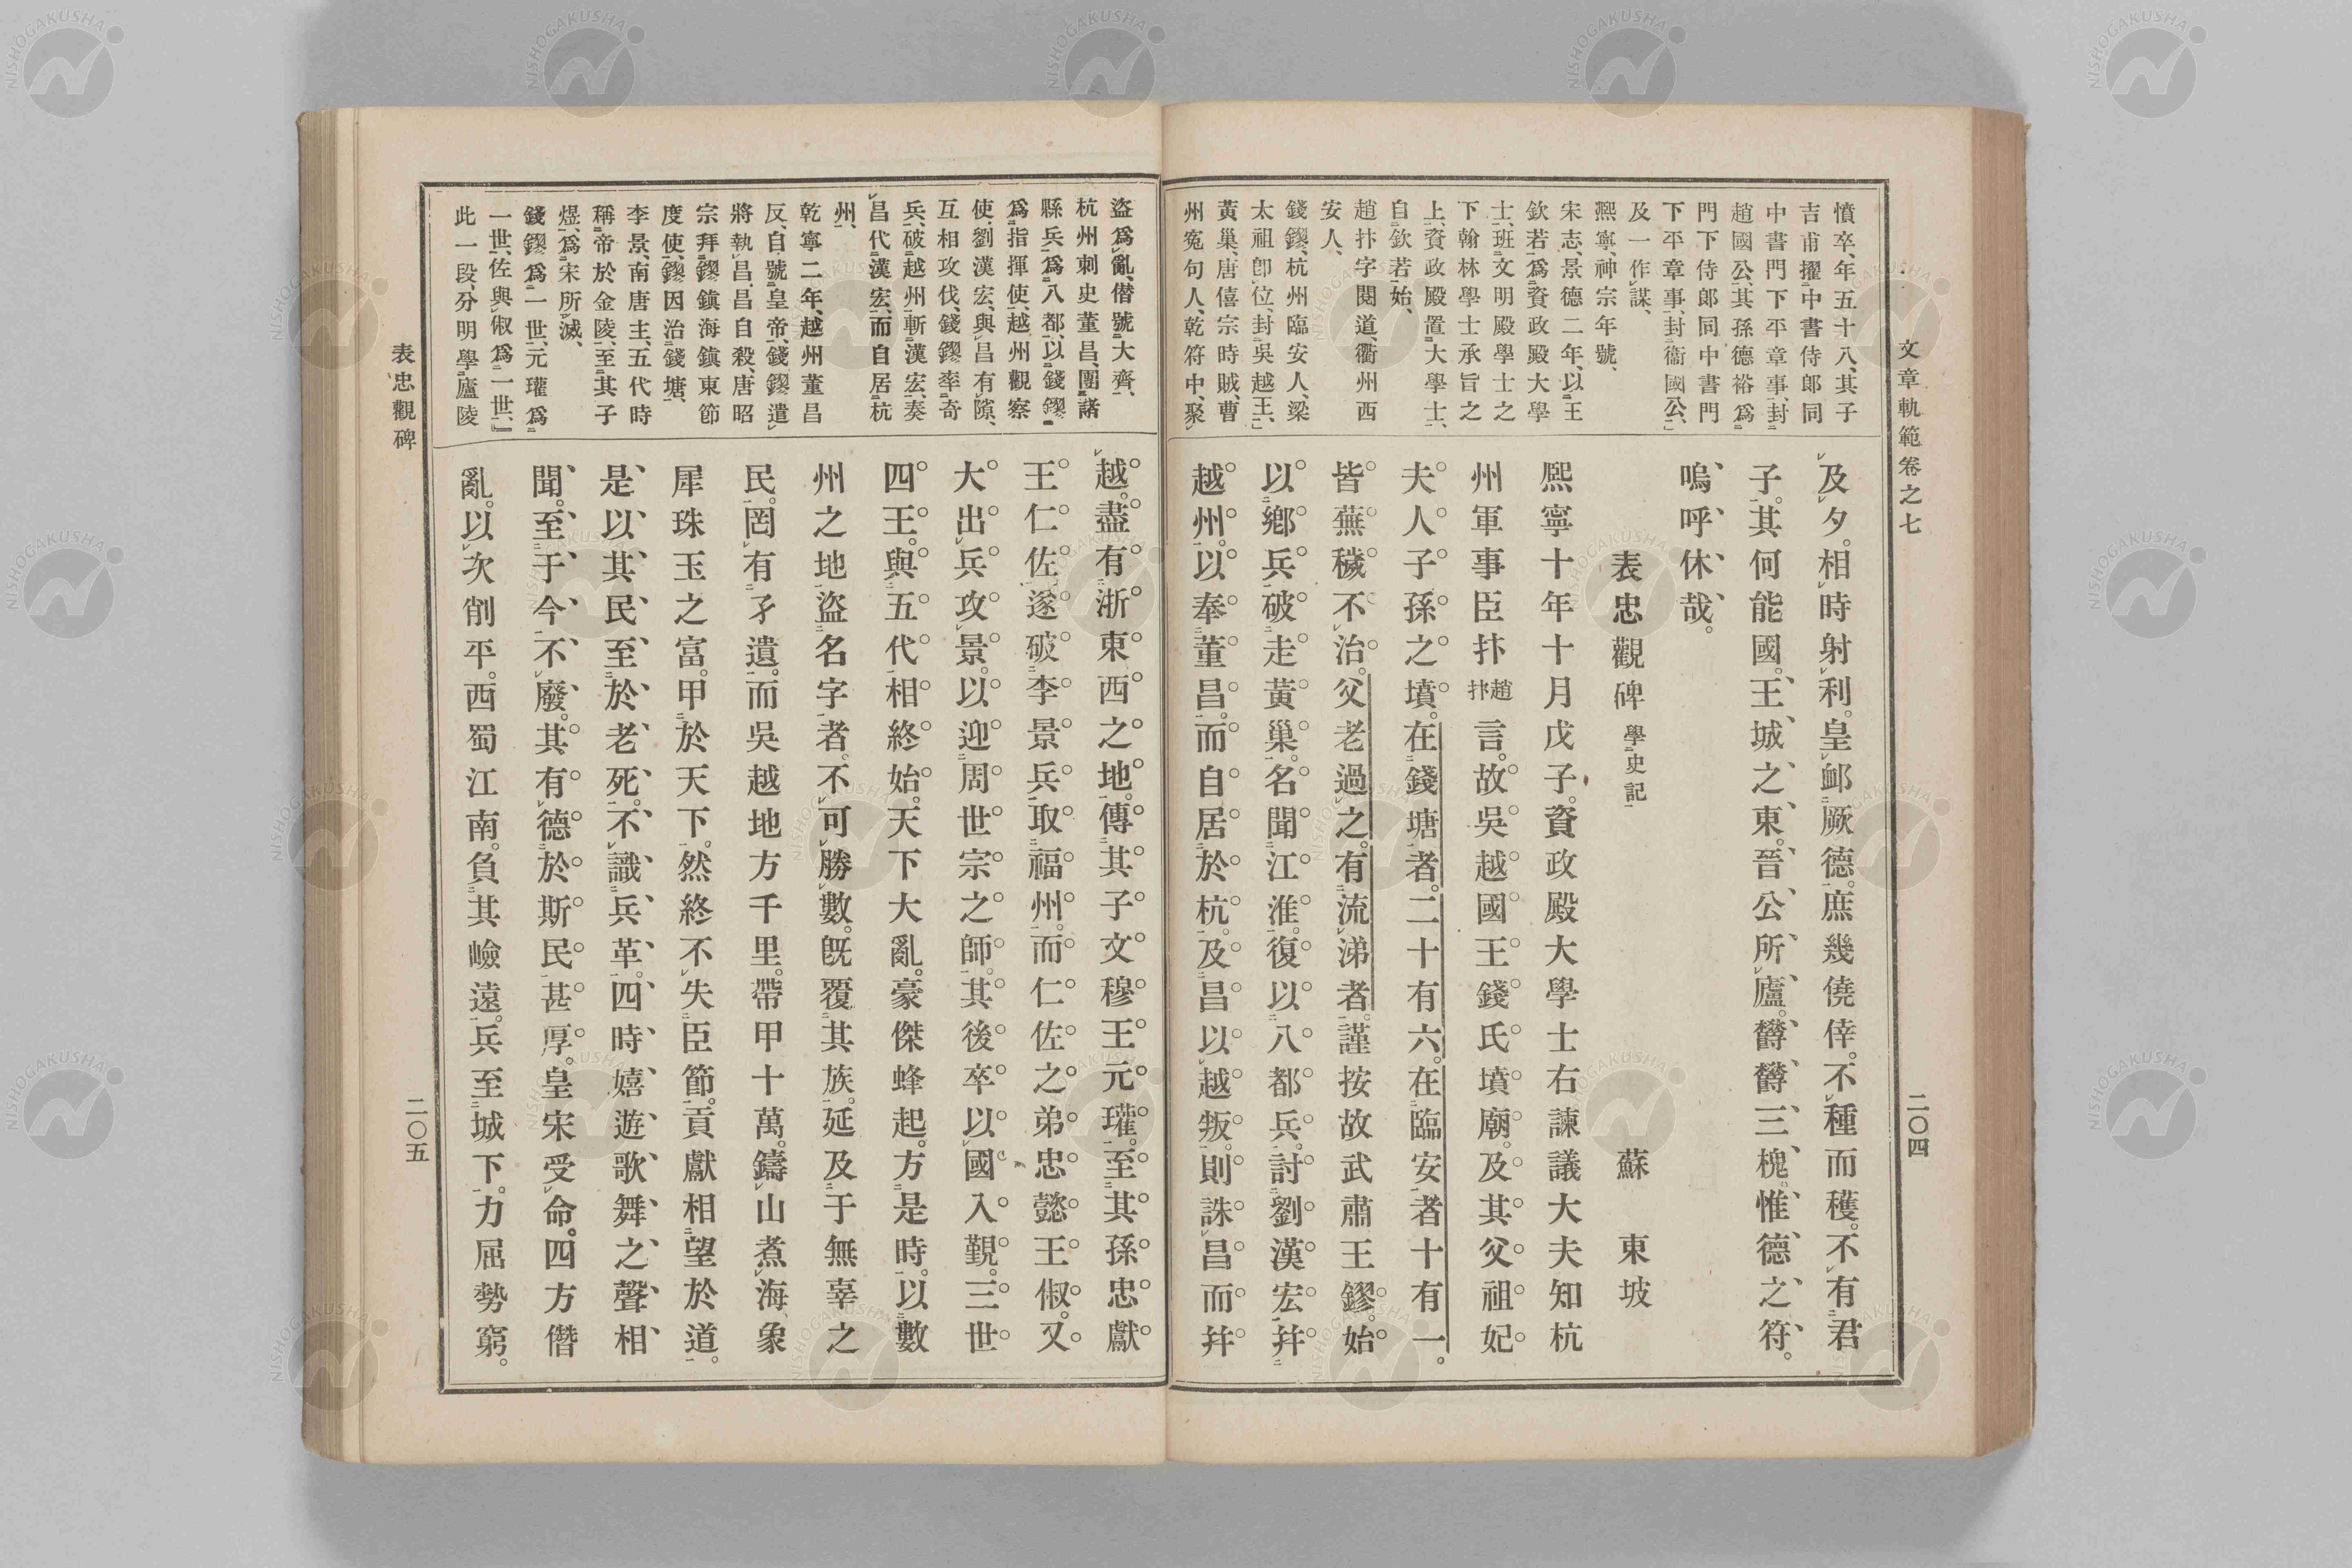 文章軌範卷之七
二〇四
憤卒、年五十八、其子
吉甫擢中書侍郎同
中書門下平章事、封
趙國公、其孫德裕爲
門下侍郎同中書門
下平章事、封衞國公、
及一作謀、
熈寧、神宗年號、
宋志、景德二年、以王
欽若爲資政殿大學
士、班文明殿學士之
下翰林學士承旨之
上、資政殿置大學士、
自欽若始、
趙抃字閱道、衢州西
安人、
錢鏐、杭州臨安人、梁
太祖卽位、封吳越王、
黃巢、唐僖宗時賊、曹
州寃句人、乾符中、聚
及夕。相時射利。皇䘏厥德。庶幾僥倖。不種而穫。不有君
子。其何能國。王城之東。晉公所廬。欝欝三槐。惟德之符。
嗚呼休哉。
表忠觀碑 學史記 蘇東坡
熈寧十年十月戊子。資政殿大學士右諫議大夫知杭
州軍事臣抃趙抃言。故吳越國王錢氏墳廟。及其父祖妃
夫人子孫之墳。在錢塘者。二十有六。在臨安者十有一。
皆蕪穢不治。父老過之。有流涕者。謹按故武肅王鏐。始
以鄕兵破走黃巢。名聞江淮。復以八都兵。討劉漢宏。幷
越州。以奉董昌。而自居於杭。及昌以越叛。則誅昌而幷
盜爲亂、僣號大齊、
杭州刺史董昌、團諸
縣兵、爲八都、以錢鏐
爲指揮使、越州觀察
使劉漢宏、與昌有隙、
互相攻伐、錢鏐率奇
兵、破越州斬漢宏、奏
昌代漢宏、而自居杭
州、
乾寧二年、越州董昌
反、自號皇帝、錢鏐遣
將執昌、昌自殺、唐昭
宗拜鏐鎭海鎭東節
度使、鏐因治錢塘、
李景、南唐主、五代時
稱帝於金陵、至其子
煜、爲宋所滅、
錢鏐爲一世、元瓘爲
一世、佐與俶爲一世、
此一段、分明學廬陵
越。盡有浙東西之地。傳其子文穆王元瓘。至其孫忠獻
王仁佐。遂破李景兵。取福州。而仁佐之弟忠懿王俶。又
大出兵攻景。以迎周世宗之師。其後卒以國入覲。三世
四王。與五代相終始。天下大亂。豪傑蜂起。方是時。以數
州之地盜名字者。不可勝數。旣覆其族。延及于無辜之
民。罔有孑遺。而吳越地方千里。帶甲十萬。鑄山煮海、象
犀珠玉之富。甲於天下。然終不失臣節。貢獻相望於道。
是以其民至於老死。不識兵革。四時嬉遊歌舞之聲相
聞。至于今不廢。其有德於斯民甚厚。皇宋受命。四方僭
亂。以次削平。西蜀江南。負其嶮遠。兵至城下。力屈勢窮。
表忠觀碑
二〇五